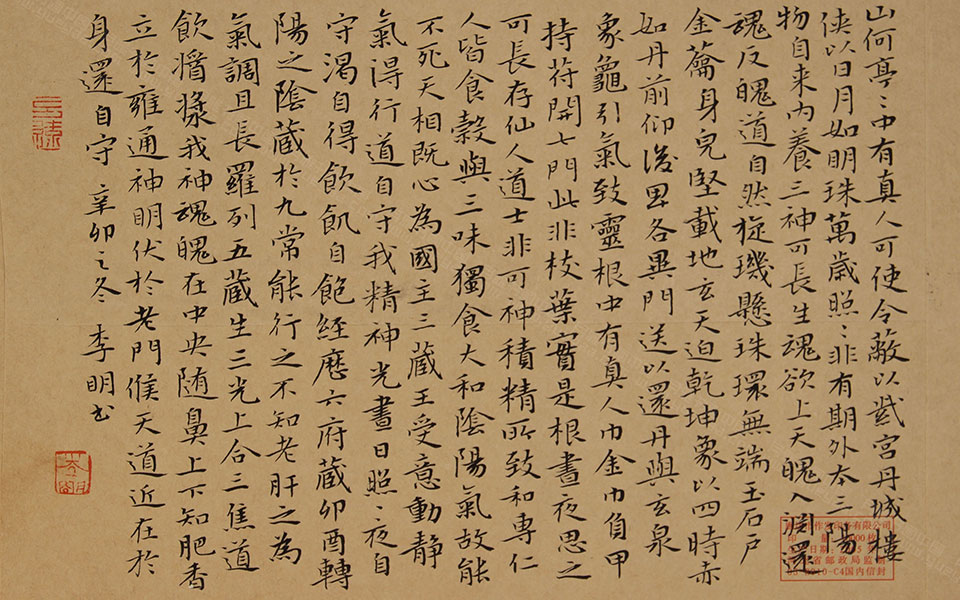 山何亭〻中有真人可使令蔽以紫宮丹城樓
俠以日月如明珠萬歲照〻非有期外本三陽
物自来内養三神可長生魂欲上天魄入淵還
魂反魄道自然旋璣懸珠環無端玉石戶
金籥身皃堅載地玄天迫乾坤象以四時赤
如丹前仰後卑各異門送以還丹與玄泉
象龜引氣致靈根中有真人巾金巾負甲
持苻開七門此非枝葉實是根晝夜思之
可長存仙人道士非可神積精所致和專仁
人皆食穀與三味獨食大和陰陽氣故能
不死天相既心為國主三蔵王受意動静
氣得行道自守我精神光晝日照〻夜自
守渴自得飲飢自飽経歷六府蔵卯酉轉
陽之陰蔵於九常能行之不知老肝之為
氣調且長羅列五蔵生三光上合三焦道
飲醬漿我神魂魄在中央随鼻上下知肥香
立於雍通神明伏於老門候天道近在於
身還自守 辛卯之冬 李明书
有限公司
000枚
省邮政局监制
C4国内信封